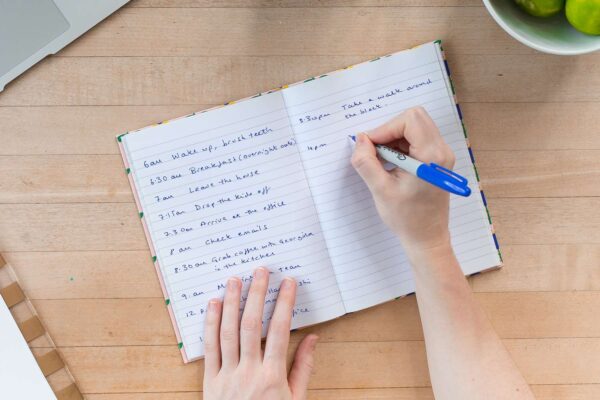 6am Wake up, brush teeth
6:30 am Breakfast (overnight oats)
7am Leave the house
7:15am Drop the kids off
7.30am Arrive at the office
8am Check emails
8.30am Grab coffee with Georgina
in the kitchen
9. am
12
3:30pm Take a walk around
the block.
4pm